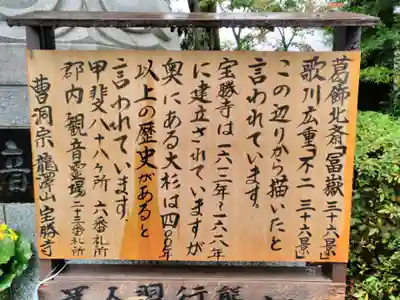 葛飾北斎「冨嶽三十六景」
歌川広重「不二三十六景」
この辺りから描いたと
言われています。
宝勝寺は一六一二年〜一六二八年
に建立されていますが
奥にある大杉は四〇〇年
以上の歴史があると
言われています。
甲斐八十八ヶ所 六番札所
郡内観音霊場 二十三番札所
曹洞宗 龍澤山 宝勝寺
音